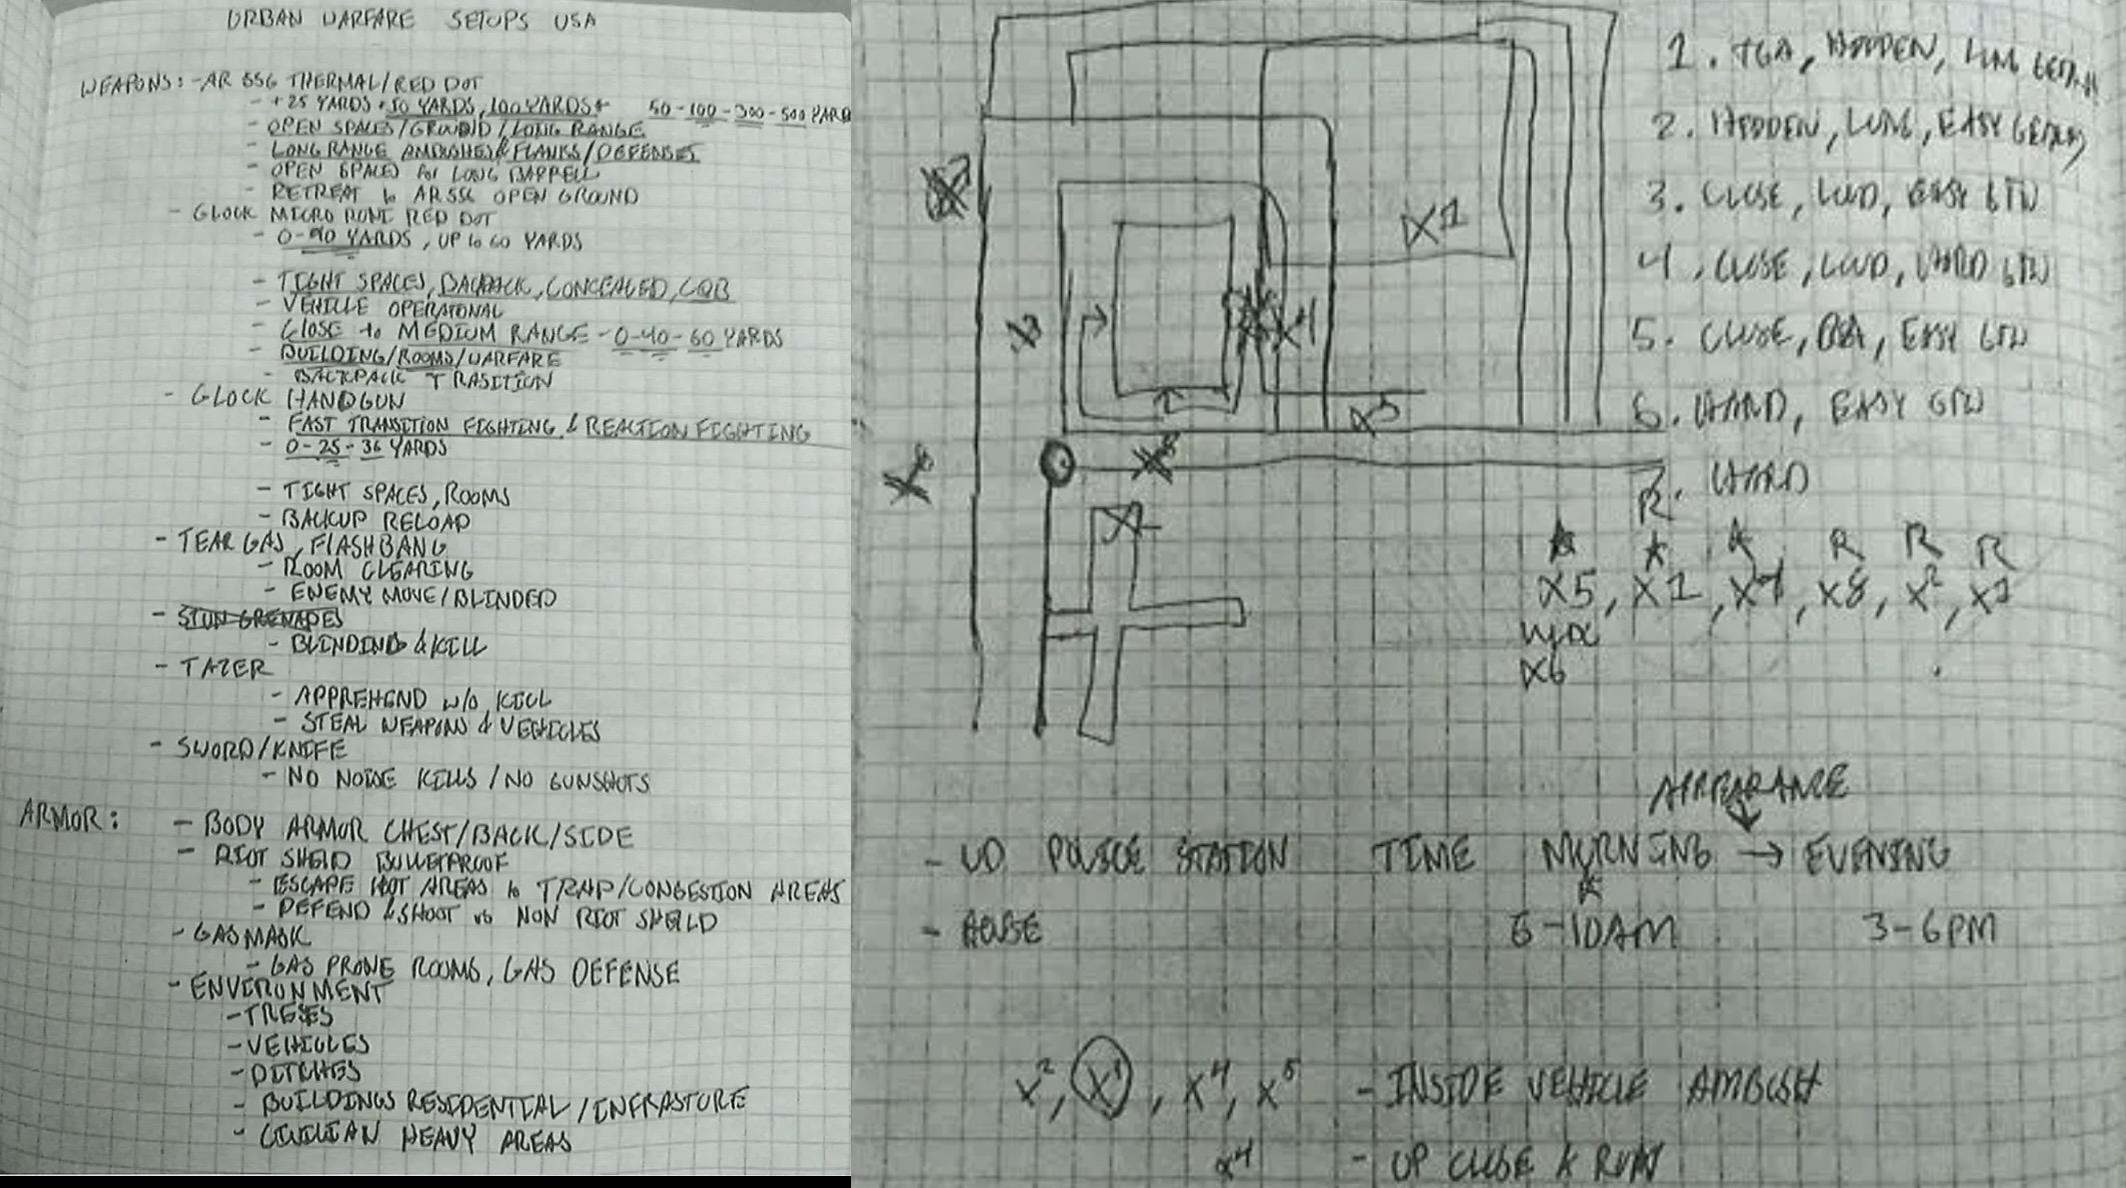 URBAN WARFARE SETUPS USA
WEAPONS: -AR 556 THERMAL/RED DOT
- +25 YARDS + 50 YARDS, 100 YARDS+ 50-100-300-500 YARD
- OPEN SPACES/GROUND/LONG RANGE
- LONG RANGE AMBUSHES & FLANKS/DEFENSES
- OPEN SPACES FOR LONG BARRELL
- RETREAT to AR556 OPEN GROUND
- GLOCK MICRO RONI RED DOT
- 0-40 YARDS, UP to 60 YARDS
- TIGHT SPACES, BACKPACK, CONCEALED, CQB
- VEHICLE OPERATONAL
- CLOSE to MEDIUM RANGE -0-40-60 YARDS
- BUILDING/ROOMS/WARFARE
- BACKPACK TRASITION
- GLOCK HANDGUN
- FAST TRANSITION FIGHTING & REACTION FIGHTING
- 0-25-36 YARDS
- TIGHT SPACES, ROOMS
- BACKUP RELOAD
- TEAR GAS, FLASHBANG
- ROOM CLEARING
- ENEMY MOVE/BLINDED
- STUN GRENADES
- BLINDING & KILL
- TAZER
- APPREHEND w/o KILL
- STEAL WEAPONS & VEHICLES
- SWORD/KNIFE
- NO NOISE KILLS/NO GUNSHOTS
ARMOR: - BODY ARMOR CHEST/BACK/SIDE
- RIOT SHEILD BULLETPROOF
- ESCAPE HOT AREAS to TRAP/CONGESTION AREAS
- DEFEND & SHOOT vs NON RIOT SHEILD
- GASMASK
- GAS PRONE ROOMS, GAS DEFENSE
- ENVIRONMENT
- TREES
- VEHICLES
- DITCHES
- BUILDINGS RESIDENTIAL/INFRASTURE
- CIVILIAN HEAVY AREAS
X1
X4
X5
1. HIDDEN,
2. HIDDEN, LONG, EASY
3. CLOSE, EASY GTW
4. CLOSE, HARD GTW
5. CLOSE, EASY GTW
6. HARD, EASY GTW
7. HARD
R
R R R
X5, X1, X4, X8, X2,
X6
APPEARANCE
- UD POLICE STATION TIME MORNING → EVENING
- HOUSE 6-10AM 3-6PM
X2, X1, X4, X5 - INSIDE VEHICLE AMBUSH
X4 - UP CLOSE & RUN